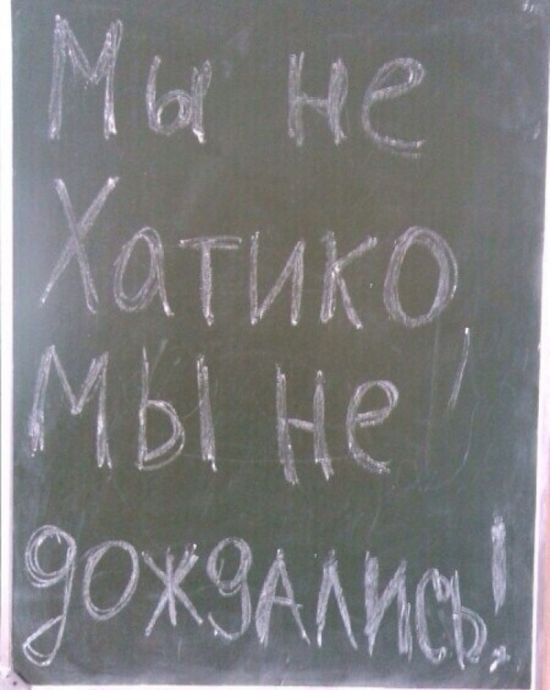 Мы не
Хатико,
Мы не
дождались!